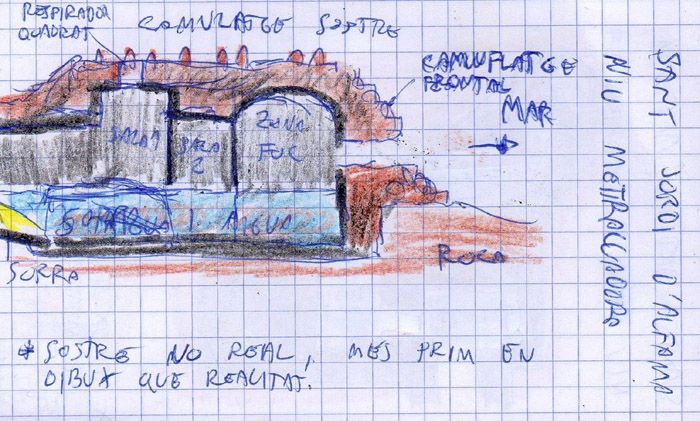 RESPIRADOR
QUADRAT
COMUFLATGE SOSTRE
CAMUUFLATGE
FRONTAL
MAR
SALA 1
SALA
2
ZONA
FOC
AIGUA
SORRA
ROCA
* SOSTRE NO REAL, MES PRIM EN
DIBUX QUE REALITAT.
SANT JORDI D'ALFAMA
NIU METRALLADORA